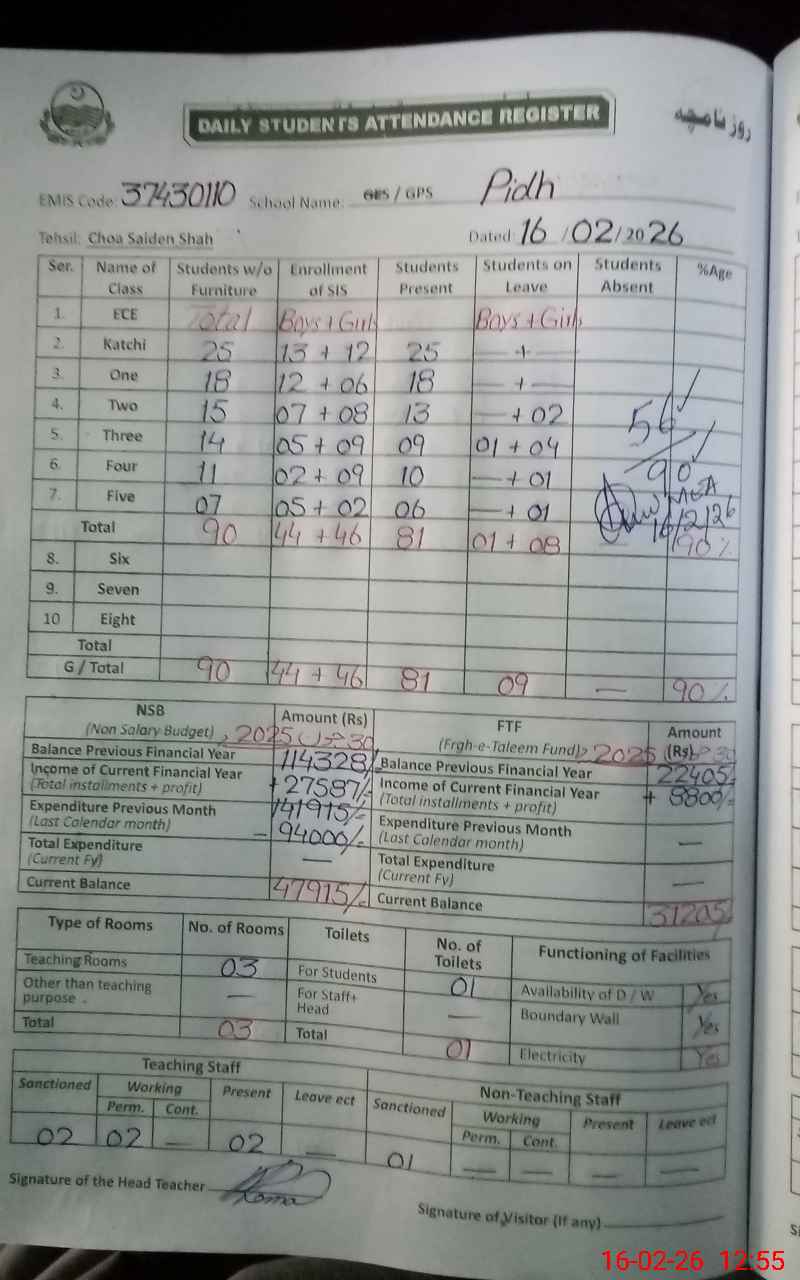 DAILY STUDENTS ATTENDANCE REGISTER
روزنامچہ
EMIS Code: 37430110 School Name: GES / GPS Pidh
Tehsil: Choa Saiden Shah Dated: 16 / 02 / 2026
Ser. Name of Class Students w/o Furniture Enrollment of SIS Students Present Students on Leave Students Absent %Age
1. ECE Total Boys + Girls Boys + Girls
2. Katchi 25 13 + 12 25 — + —
3. One 18 12 + 06 18 — + —
4. Two 15 07 + 08 13 — + 02
5. Three 14 05 + 09 09 01 + 04
6. Four 11 02 + 09 10 — + 01
7. Five 07 05 + 02 06 — + 01
56
90
AEA
16/2/26
Total 90 44 + 46 81 01 + 08 — 90%
8. Six
9. Seven
10 Eight
Total
G / Total 90 44 + 46 81 09 — 90%
NSB (Non Salary Budget) 2025 Amount (Rs) FTF (Frgh-e-Taleem Fund) 2025 Amount (Rs)
Balance Previous Financial Year 114328/- Balance Previous Financial Year 22405/-
Income of Current Financial Year (Total installments + profit) + 27587/- Income of Current Financial Year (Total installments + profit) + 8800/-
141915/-
Expenditure Previous Month (Last Calendar month) - 94000/- Expenditure Previous Month (Last Calendar month) —
Total Expenditure (Current Fy) — Total Expenditure (Current Fy) —
Current Balance 47915/- Current Balance 31205/-
Type of Rooms No. of Rooms Toilets No. of Toilets Functioning of Facilities
Teaching Rooms 03 For Students 01 Availability of D / W Yes
Other than teaching purpose — For Staff+ Head — Boundary Wall Yes
Total 03 Total 01 Electricity Yes
Teaching Staff Non-Teaching Staff
Sanctioned Working Present Leave ect Sanctioned Working Present Leave ect
Perm. Cont. Perm. Cont.
02 02 — 02 — 01 — — — —
Signature of the Head Teacher
Signature of Visitor (If any)
16-02-26 12:55